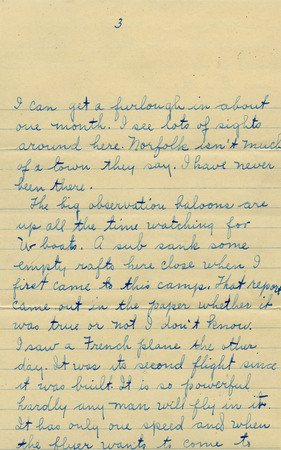 3
I can get a furlough in about
one month. I see lots of sights
around here. Norfolk isn't much
of a town they say. I have never
been there.
The big observation baloons are
up all the time watching for
U boats. A sub sank some
empty rafts here close when I
first came to this camp. That report
came out in the paper whether it
was true or not I don't know.
I saw a French plane the other
day. It was its second flight since
it was built. It is so powerful
hardly any man will fly in it.
It has only one speed and when
the flyer wants to come to